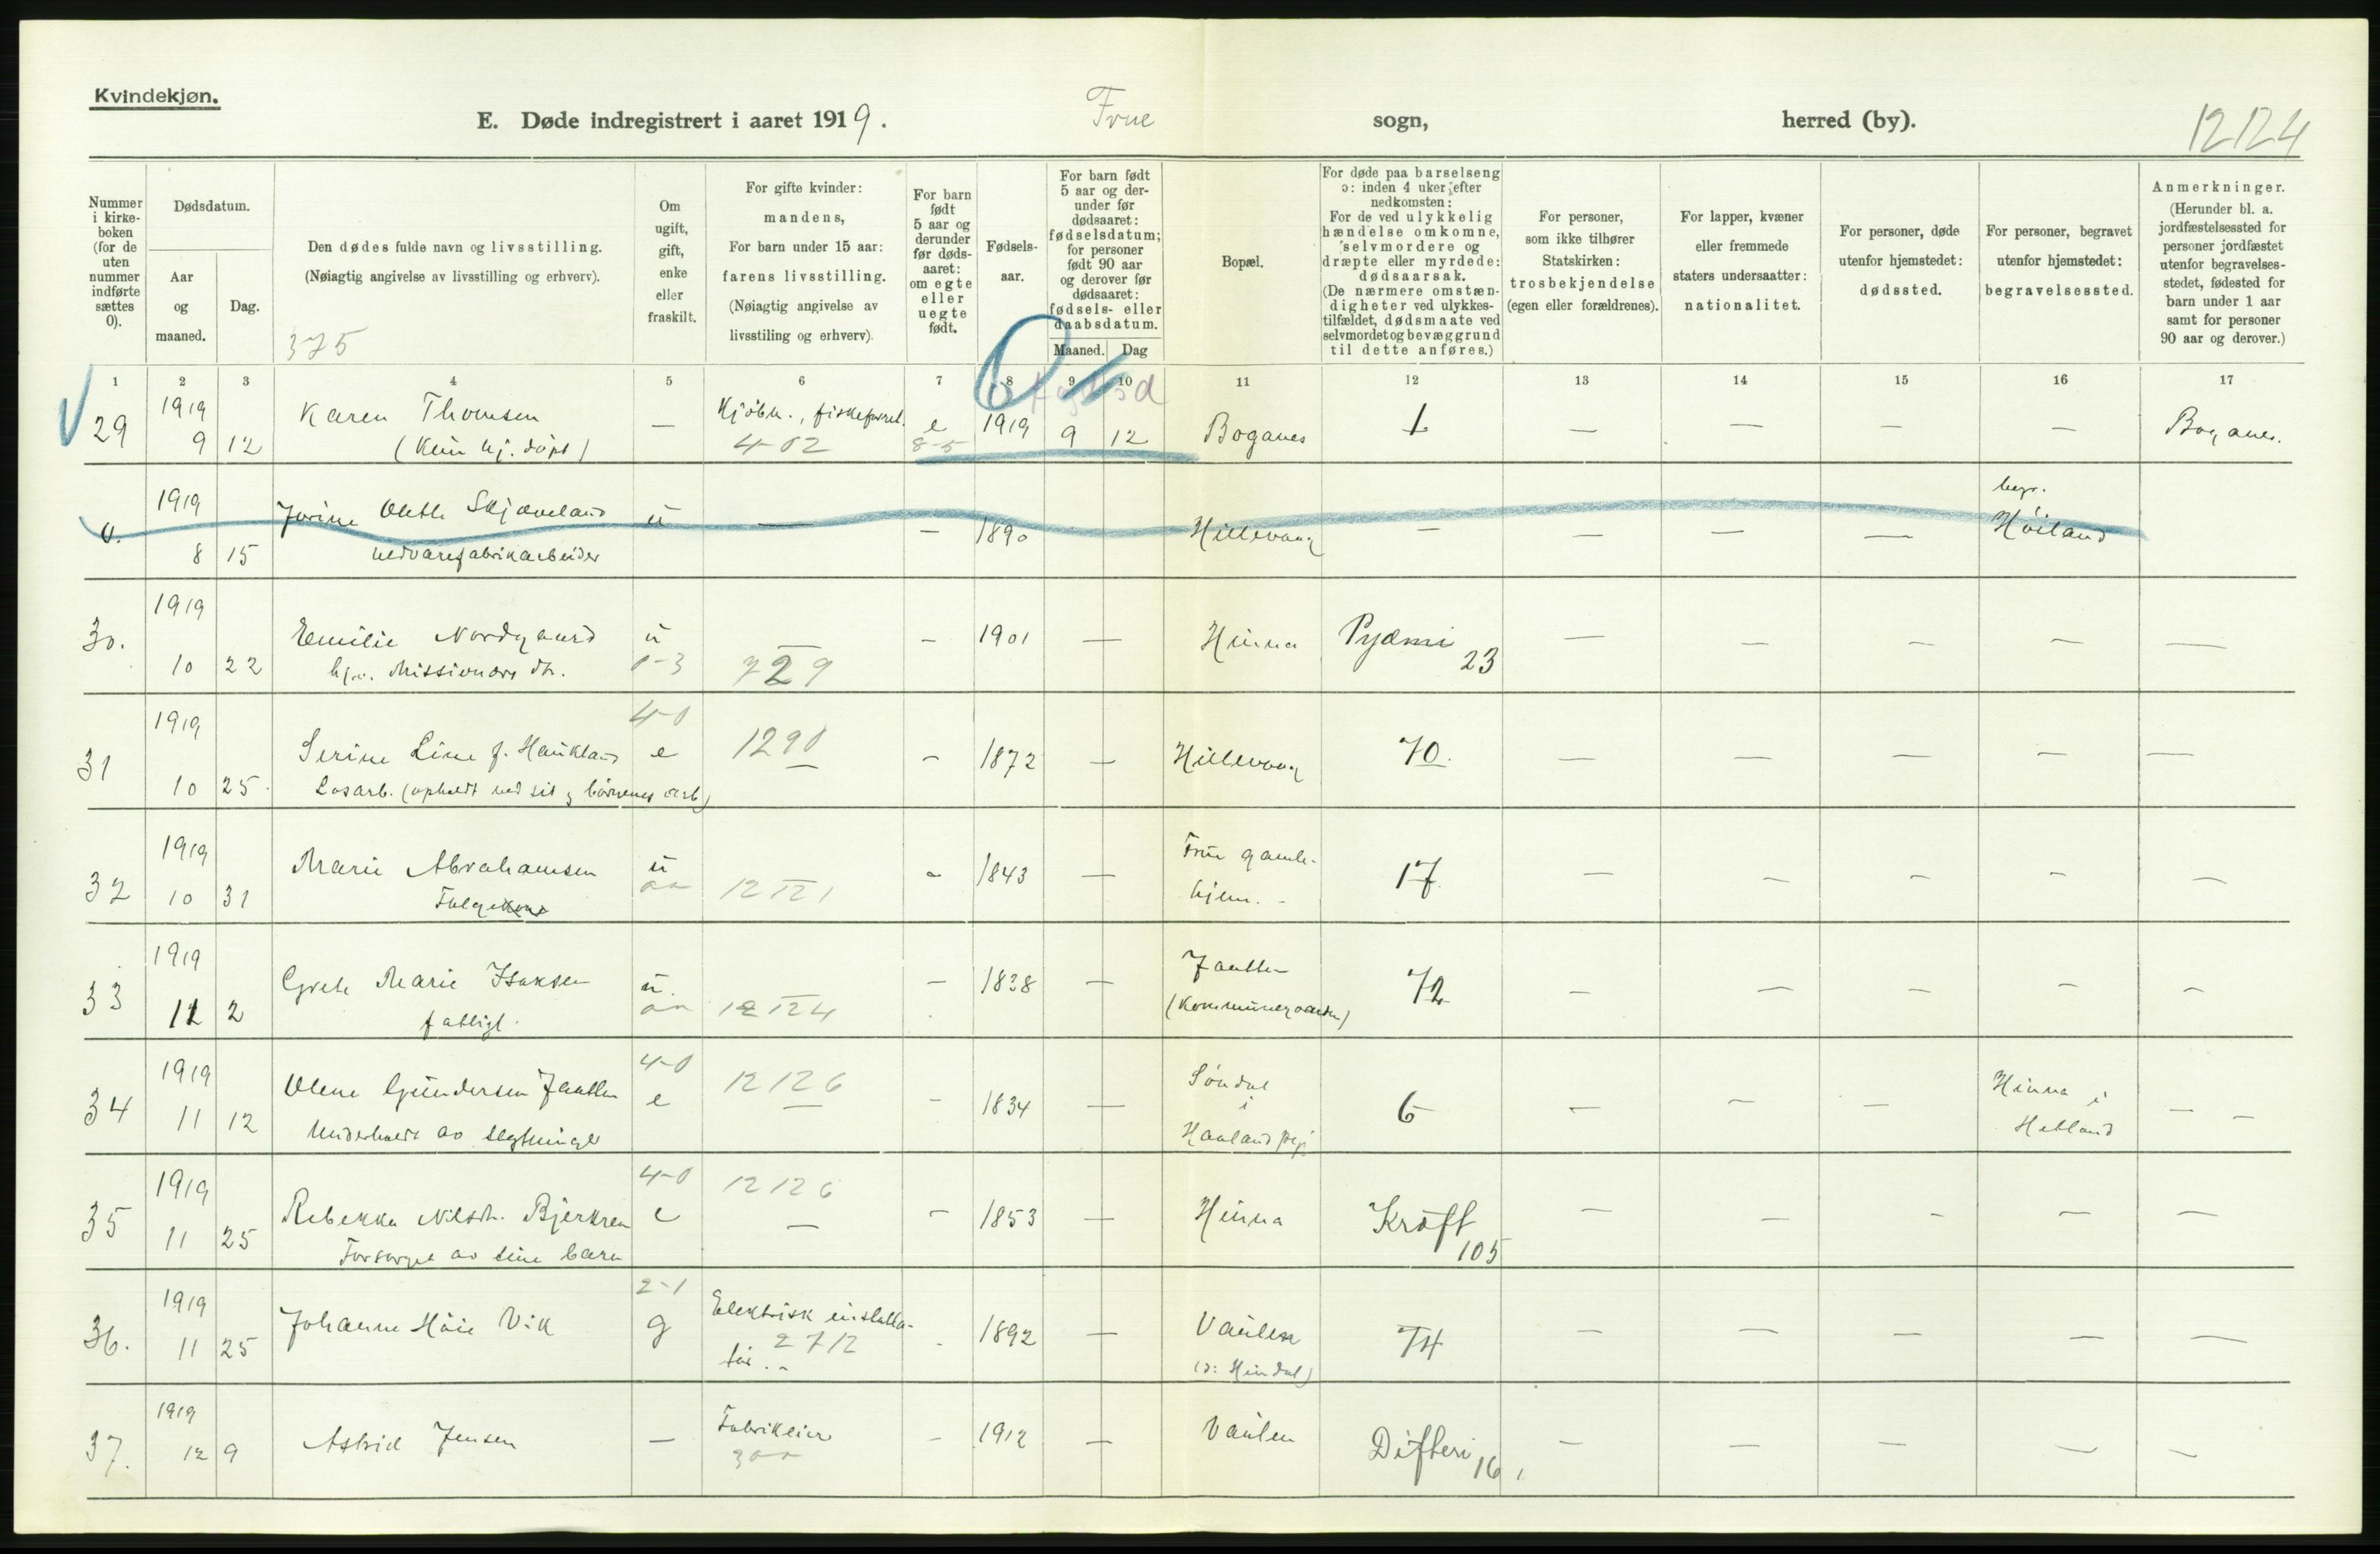 Kvindekjøn.
E. Døde indregistrert i aaret 1919. Frue sogn, herred (by). 12124
Nummer i kirke-boken (for de uten nummer indførte sættes 0).
Dødsdatum.
Aar og maaned.
Dag.
Den dødes fulde navn og livsstilling.
(Nøiagtig angivelse av livsstilling og erhverv).
375
Om ugift, gift, enke eller fraskilt.
For gifte kvinder: mandens,
For barn under 15 aar: farens livsstilling.
(Nøiagtig angivelse av livsstiling og erhverv).
For barn født 5 aar og derunder før døds-aaret: om egte eller uegte født.
Fødsels-aar.
For barn født 5 aar og der-under før dødsaaret: fødselsdatum; for personer født 90 aar og derover før dødsaaret: fødsels- eller daabsdatum.
Maaned. Dag
Bopæl.
For døde paa barselseng ɔ: inden 4 uker efter nedkomsten:
For de ved ulykkelig hændelse omkomne, selvmordere og dræpte eller myrdede: dødsaarsak.
(De nærmere omstæn-digheter ved ulykkes-tilfældet, dødsmaate ved selvmordet og bevæggrund til dette anføres.)
For personer, som ikke tilhører Statskirken: trosbekjendelse (egen eller forældrenes).
For lapper, kvæner eller fremmede staters undersaatter: nationalitet.
For personer, døde utenfor hjemstedet: dødssted.
For personer, begravet utenfor hjemstedet: begravelsessted.
Anmerkninger.
(Herunder bl. a. jordfæstelsessted for personer jordfæstet utenfor begravelses-stedet, fødested for barn under 1 aar samt for personer 90 aar og derover.)
1 2 3 4 5 6 7 8 9 10 11 12 13 14 15 16 17
29 1919 9 12 Karen Thomsen — Kjøbm., fiskeforret. e 1919 9 12 Boganes 1 — — — — Boganes.
(Kun hj. døpt) 4-02 8-5
0. 1919 8 15 Jorine Olette Skjæveland u — — 1890 Hillevaag — — — — begr. Høiland
nedvarefabrikarbeider
30. 1919 10 22 Emilie Nordgaard u — — 1901 — Hinna Pyæmi 23 — — — — —
hj.. Missionærs dt. 0-3 729
31 1919 10 25. Serine Line f. Haukland 4-0 e 1290 — — 1872 — Hillevaag 70. — — — — —
Løsarb. (opholdt ved sit og børnenes arb)
32 1919 10 31 Marie Abrahamsen u — 1843 — Frue gamle-hjem. 17 — — — — —
12121
33 1919 11 2 Grete Marie Isaksen u. — — 1838 — Jaatten (Kommunegaarden) 72 — — — — —
fattigl. 12124
34 1919 11 12 Olene Gundersen Jaatten 4-0 e 12126 — — 1834 — Søndal i Haaland pgj. 6 — — — Hinna i Hetland — —
Underholdt av slegtninge
35 1919 11 25 Rebekka Nilsdt. Bjerkren 4-0 e 12126 — — 1853 — Hinna Kræft 105 — — — — —
Forsørget av sine barn
36. 1919 11 25 Johanne Høie Vik 2-1 g Elektrisk installa-tør. 2712 - 1892 — Vaulen (ɔ: Hindal) 74 — — — — —
37. 1919 12 9 Astrid Jensen — Fabrikeier — 1912 — Vaulen Difteri 16 — — — — —